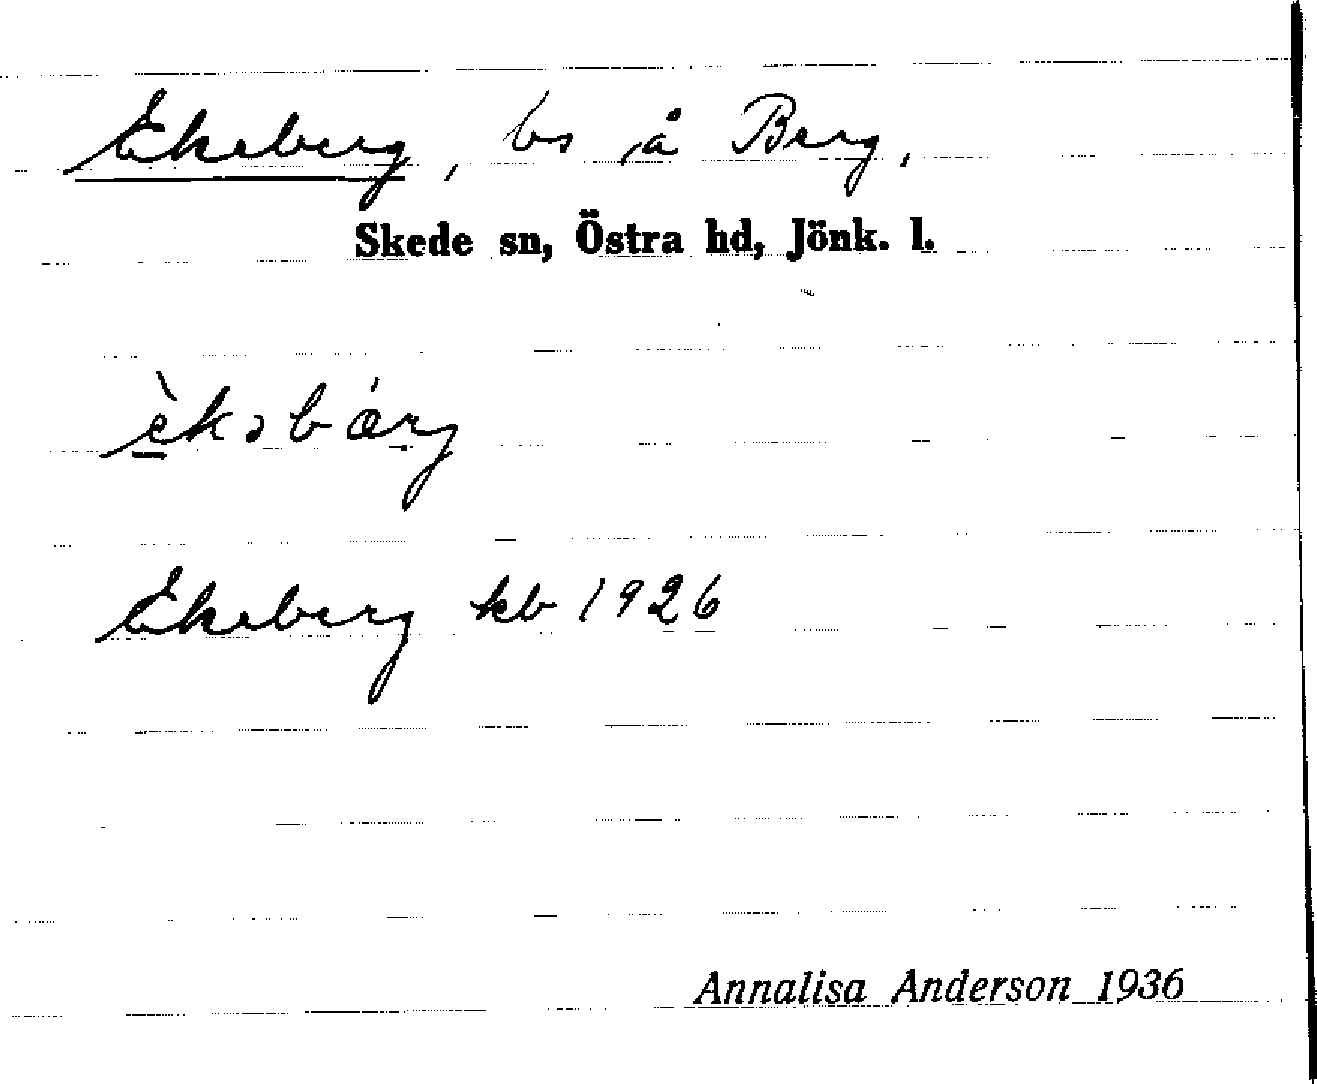 Ekeberg, bs å Berg,
Skede sn, Östra hd, Jönk. l.
è̱kəbárj
Ekeberg kb 1926
Annalisa Anderson 1936